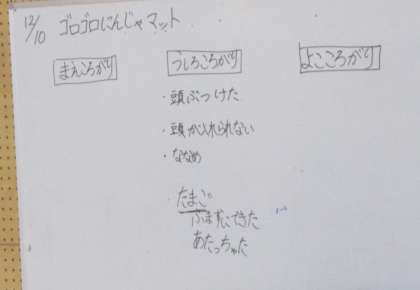 12/10 ゴロゴロにんじゃマット
まえころがり
うしろころがり
よこころがり
・頭ぶつけた
・頭が入れられない
・ななめ
・たまご
ふまずにできた
あたっちゃた